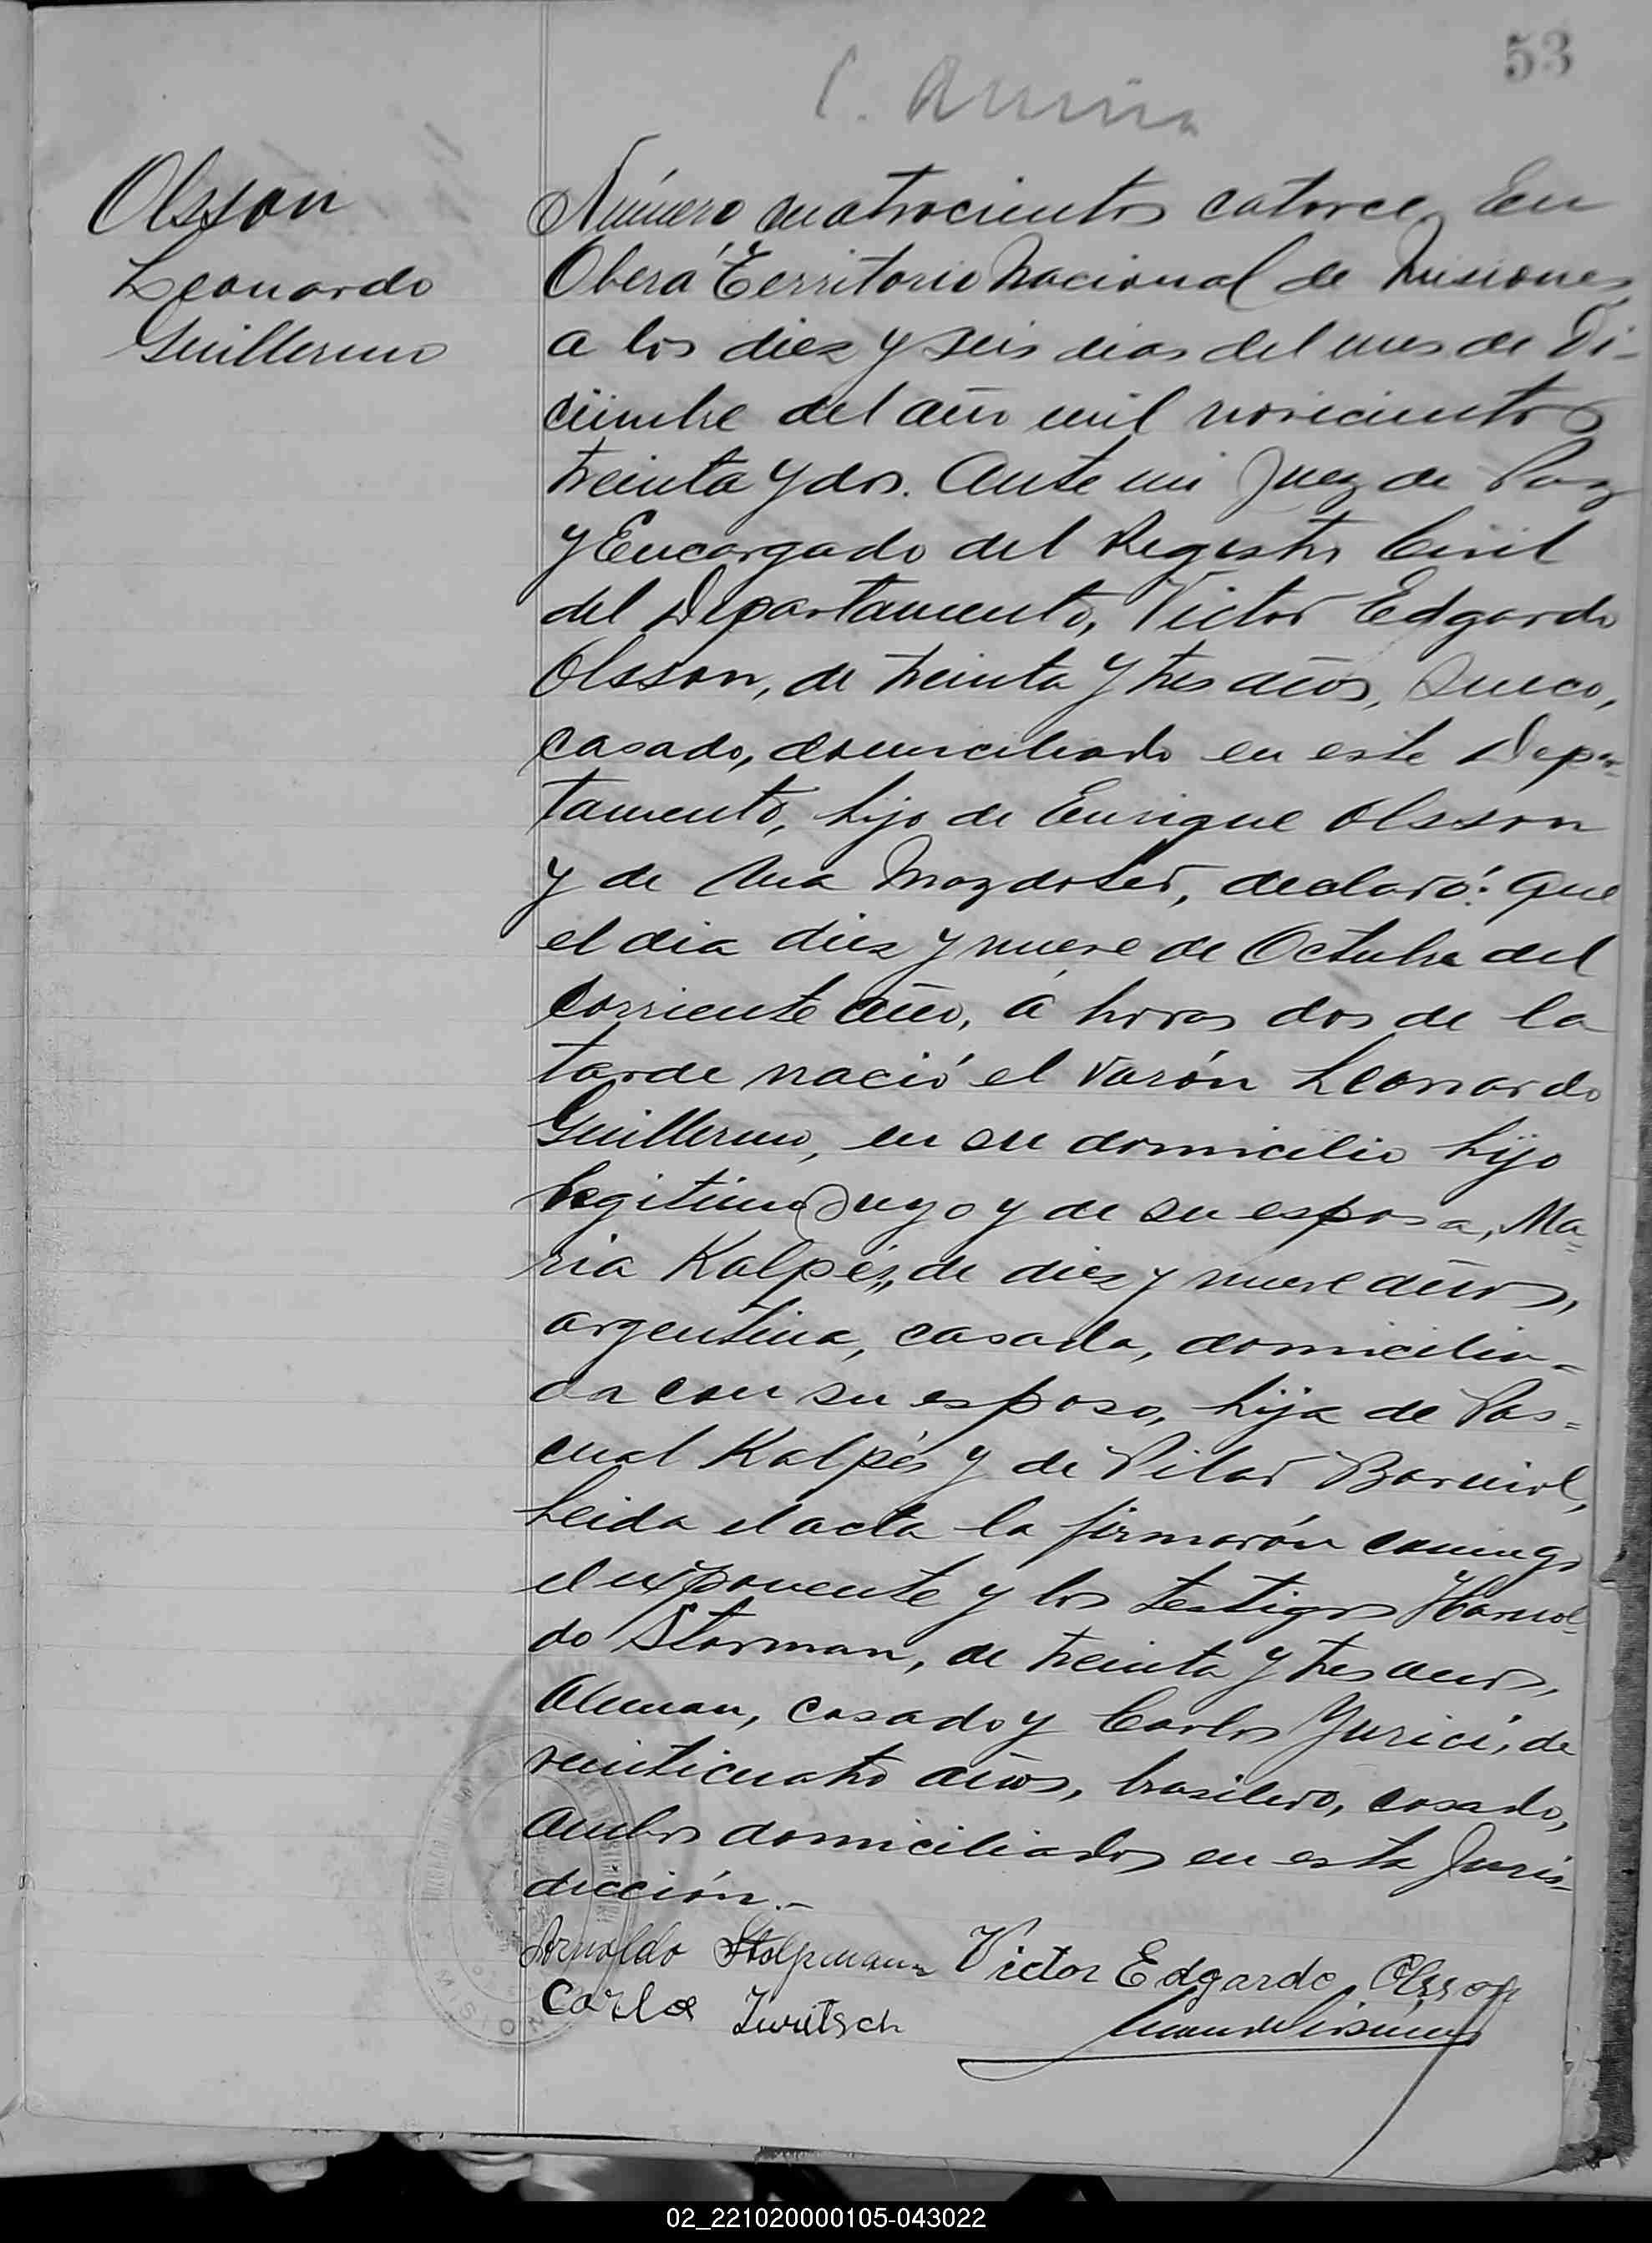 53
Olsson
Leonardo
Guillermo
Número cuatrocientos catorce, En
Oberá Territorio Nacional de Misiones,
a los diez y seis dias del mes de Di-
ciembre del año mil novecientos
treinta y dos. Ante mi Juez de Paz
y Encargado del Registro Civil
del Departamento, Victor Edgardo
Olsson, de treinta y tres años, Sueco,
casado, domiciliado en este Depar-
tamento, hijo de Enrique Olsson
y de Ana declaró: que
el dia diez y nueve de Octubre del
corriente año, á horas dos de la
tarde nació el varón Leonardo
Guillermo, en su domicilio hijo
legitimo suyo y de su esposa, Ma=
ria Kalpés, de diez y nueve años,
argentina, casada, domicilia-
da con su esposo, hija de Pas=
cual Kalpés y de Pilar Barniol,
Leida el acta la firmarón conmigo
el exponente y los testigos Harnol-
do Storman, de treinta y tres años,
Aleman, casado y Carlos Yurici, de
veinticuatro años, brasilero, casado,
ambos domiciliados en esta Juris-
dicción.-
Arnoldo Stolpmann Victor Edgardo Olsson
Carlos Juritsch
02_221020000105-043022